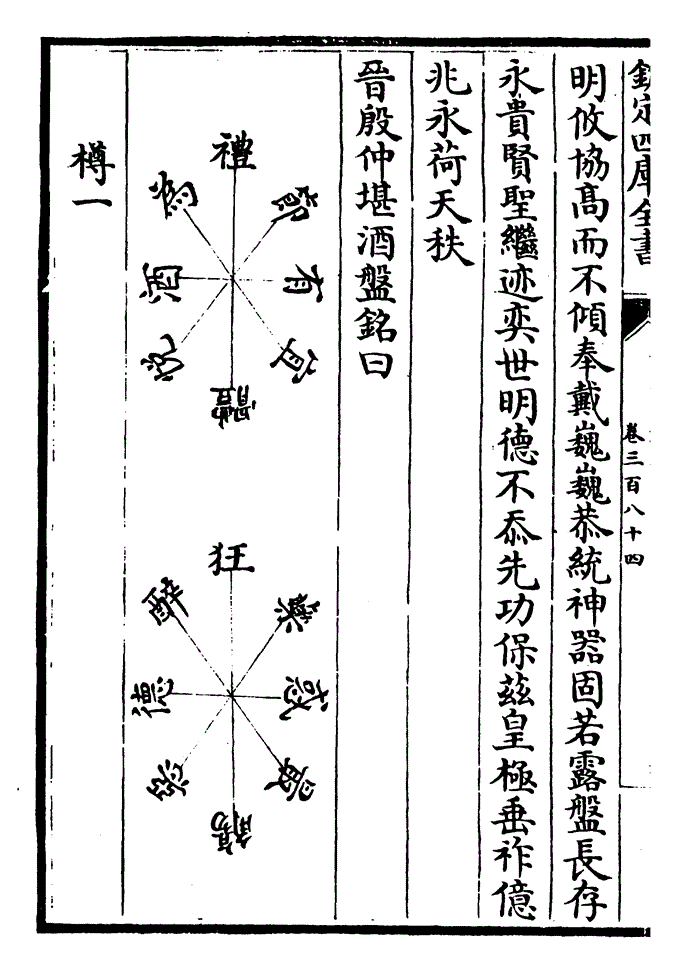 欽定四庫全書
卷三百八十四
明攸協高而不傾奉戴巍巍恭統神器固若露盤長存
永貴賢聖繼迹奕世明德不忝先功保茲皇極垂祚億
兆永荷天秩
晉殷仲堪酒盤銘曰
禮
為
酒
悅
體
宜
有
節
狂
醉
德
觴
最
樽一